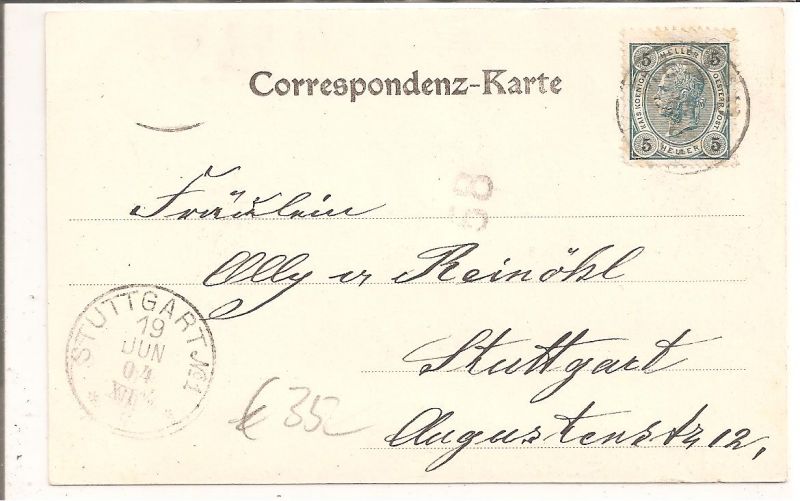 Correspondenz-Karte
5 HELLER 5
KAIS. KOENIGL. OESTERR. POST
5 HELLER 5
58
Fräulein
Olly v Reinöhl
Stuttgart
Augustenstr 12,
STUTTGART No1
19
JUN
04
35